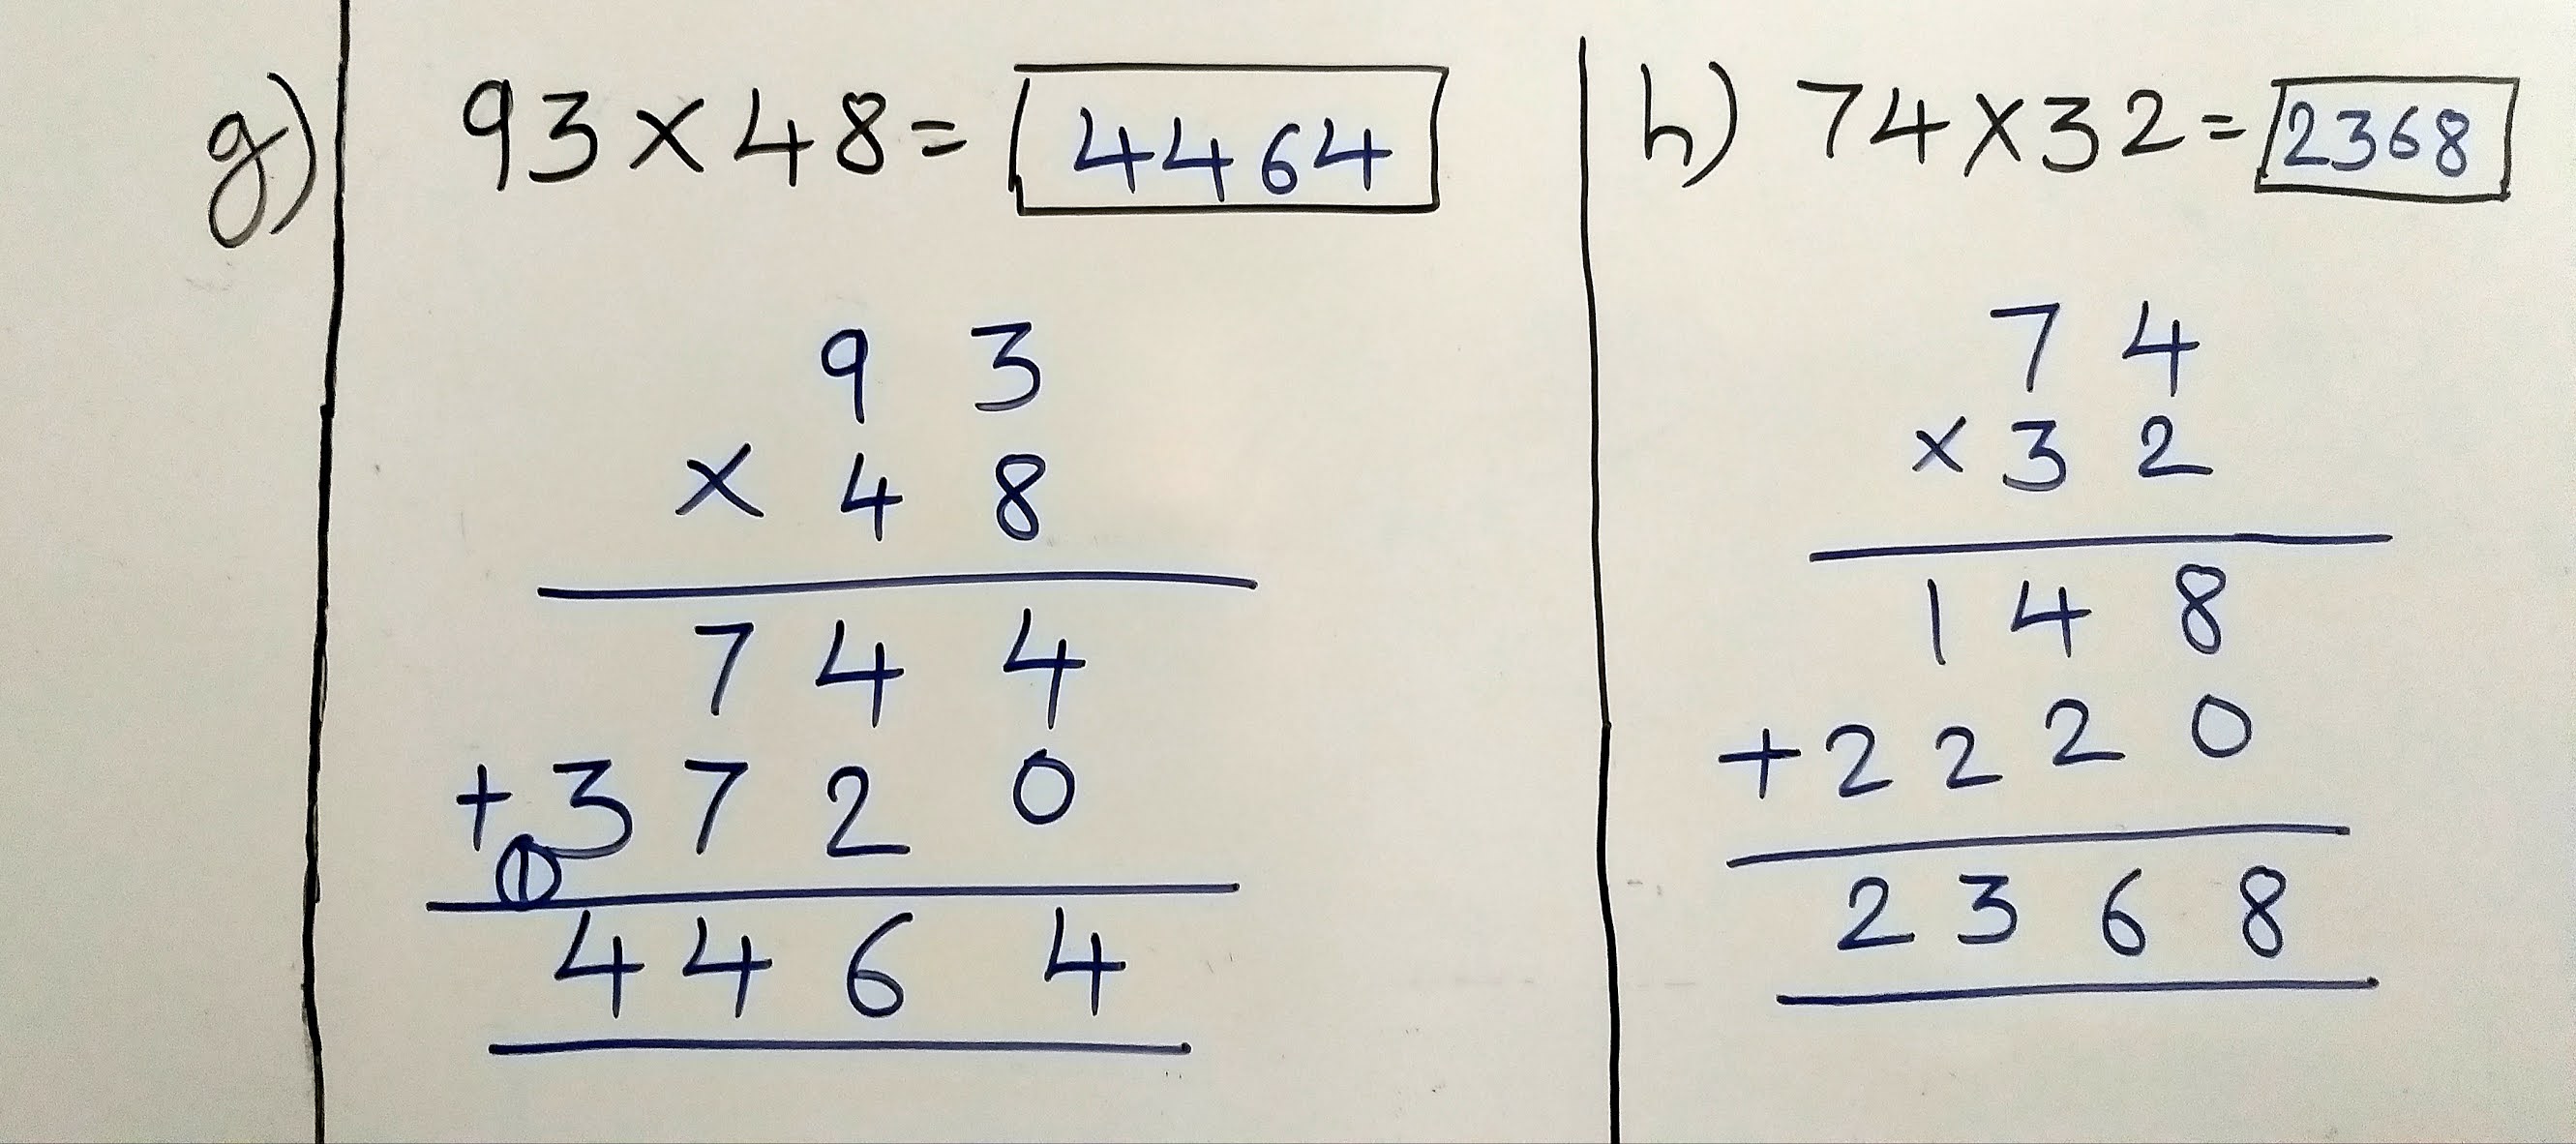 g) 93 × 48 = 4464
9 3
× 4 8
7 4 4
+ 3 7 2 0
1
4 4 6 4
h) 74 × 32 = 2368
7 4
× 3 2
1 4 8
+ 2 2 2 0
2 3 6 8